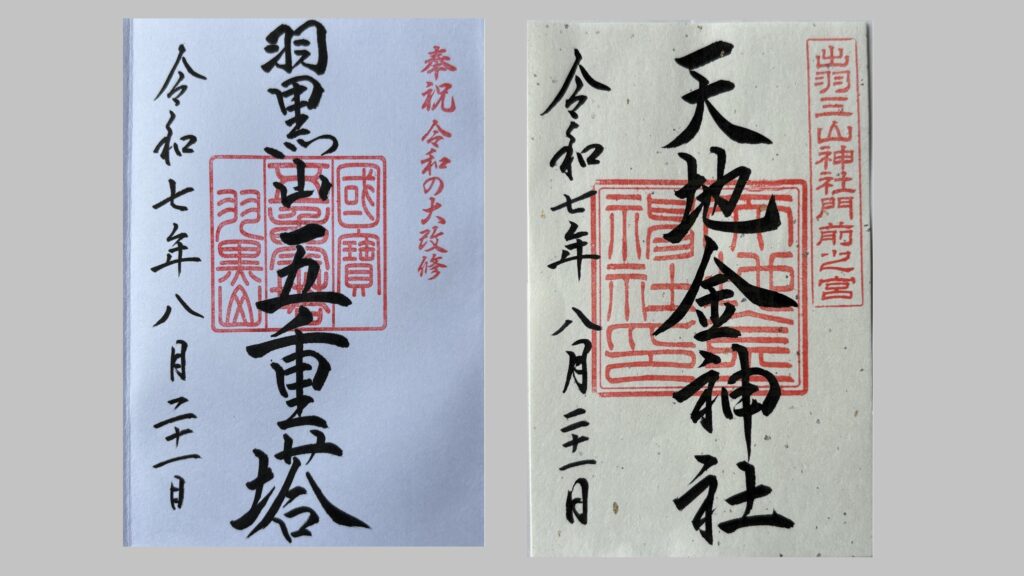 奉祝 令和の大改修
羽黒山五重塔
國寶
五重塔
羽黒山
令和七年 八月二十一日
出羽三山神社門前之宮
天地金神社
令和七年 八月二十一日